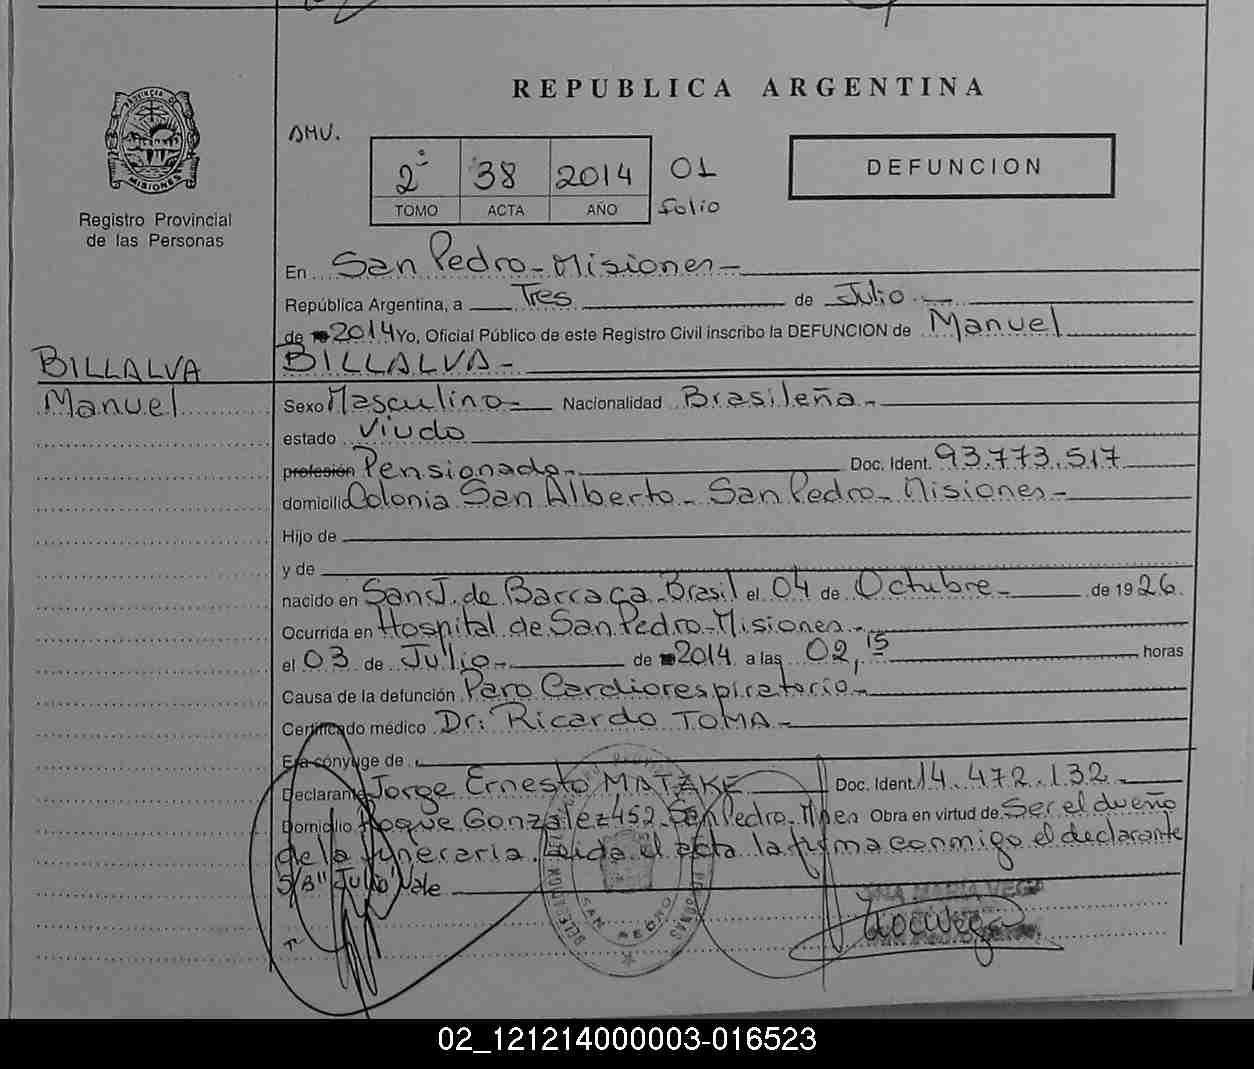 REPUBLICA ARGENTINA
PROVINCIA DE MISIONES
Registro Provincial
de las Personas
AMV.
2° 38 2014 01
TOMO ACTA AÑO folio
DEFUNCION
En San Pedro - Misiones -
República Argentina, a Tres de Julio -
de 2014 Yo, Oficial Público de este Registro Civil inscribo la DEFUNCION de Manuel
BILLALVA -
BILLALVA
Manuel
Sexo Masculino - Nacionalidad Brasileña -
estado Viudo
profesión Pensionado - Doc. Ident. 93.773.517
domicilio Colonia San Alberto - San Pedro - Misiones -
Hijo de
y de
nacido en San J. de Barraca - Brasil el 04 de Octubre - de 1926.
Ocurrida en Hospital de San Pedro - Misiones -
el 03 de Julio - de 2014 a las 02,15 horas
Causa de la defunción Paro Cardiorespiratorio -
Certificado médico Dr: Ricardo TOMA -
Era cónyuge de
Declarante Jorge Ernesto MATZKE Doc. Ident. 14.472.132 -
Domicilio Roque González 452 - San Pedro - Mnes Obra en virtud de Ser el dueño
de la funeraria. Leida el acta la firma conmigo el declarante
S/B "Julio" Vale
SAN PEDRO
ANA MARIA VEGA
02_121214000003-016523